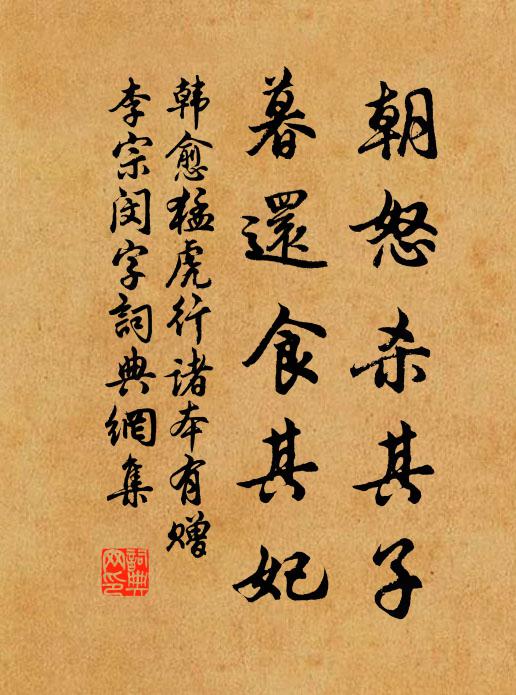 朝怒杀其子
暮還食其妃
韩愈猛虎行诸本有赠
李宗闵字詞典網集
詞典网印